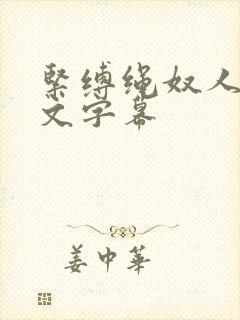 緊缚绳奴人
文字幕
姜中華